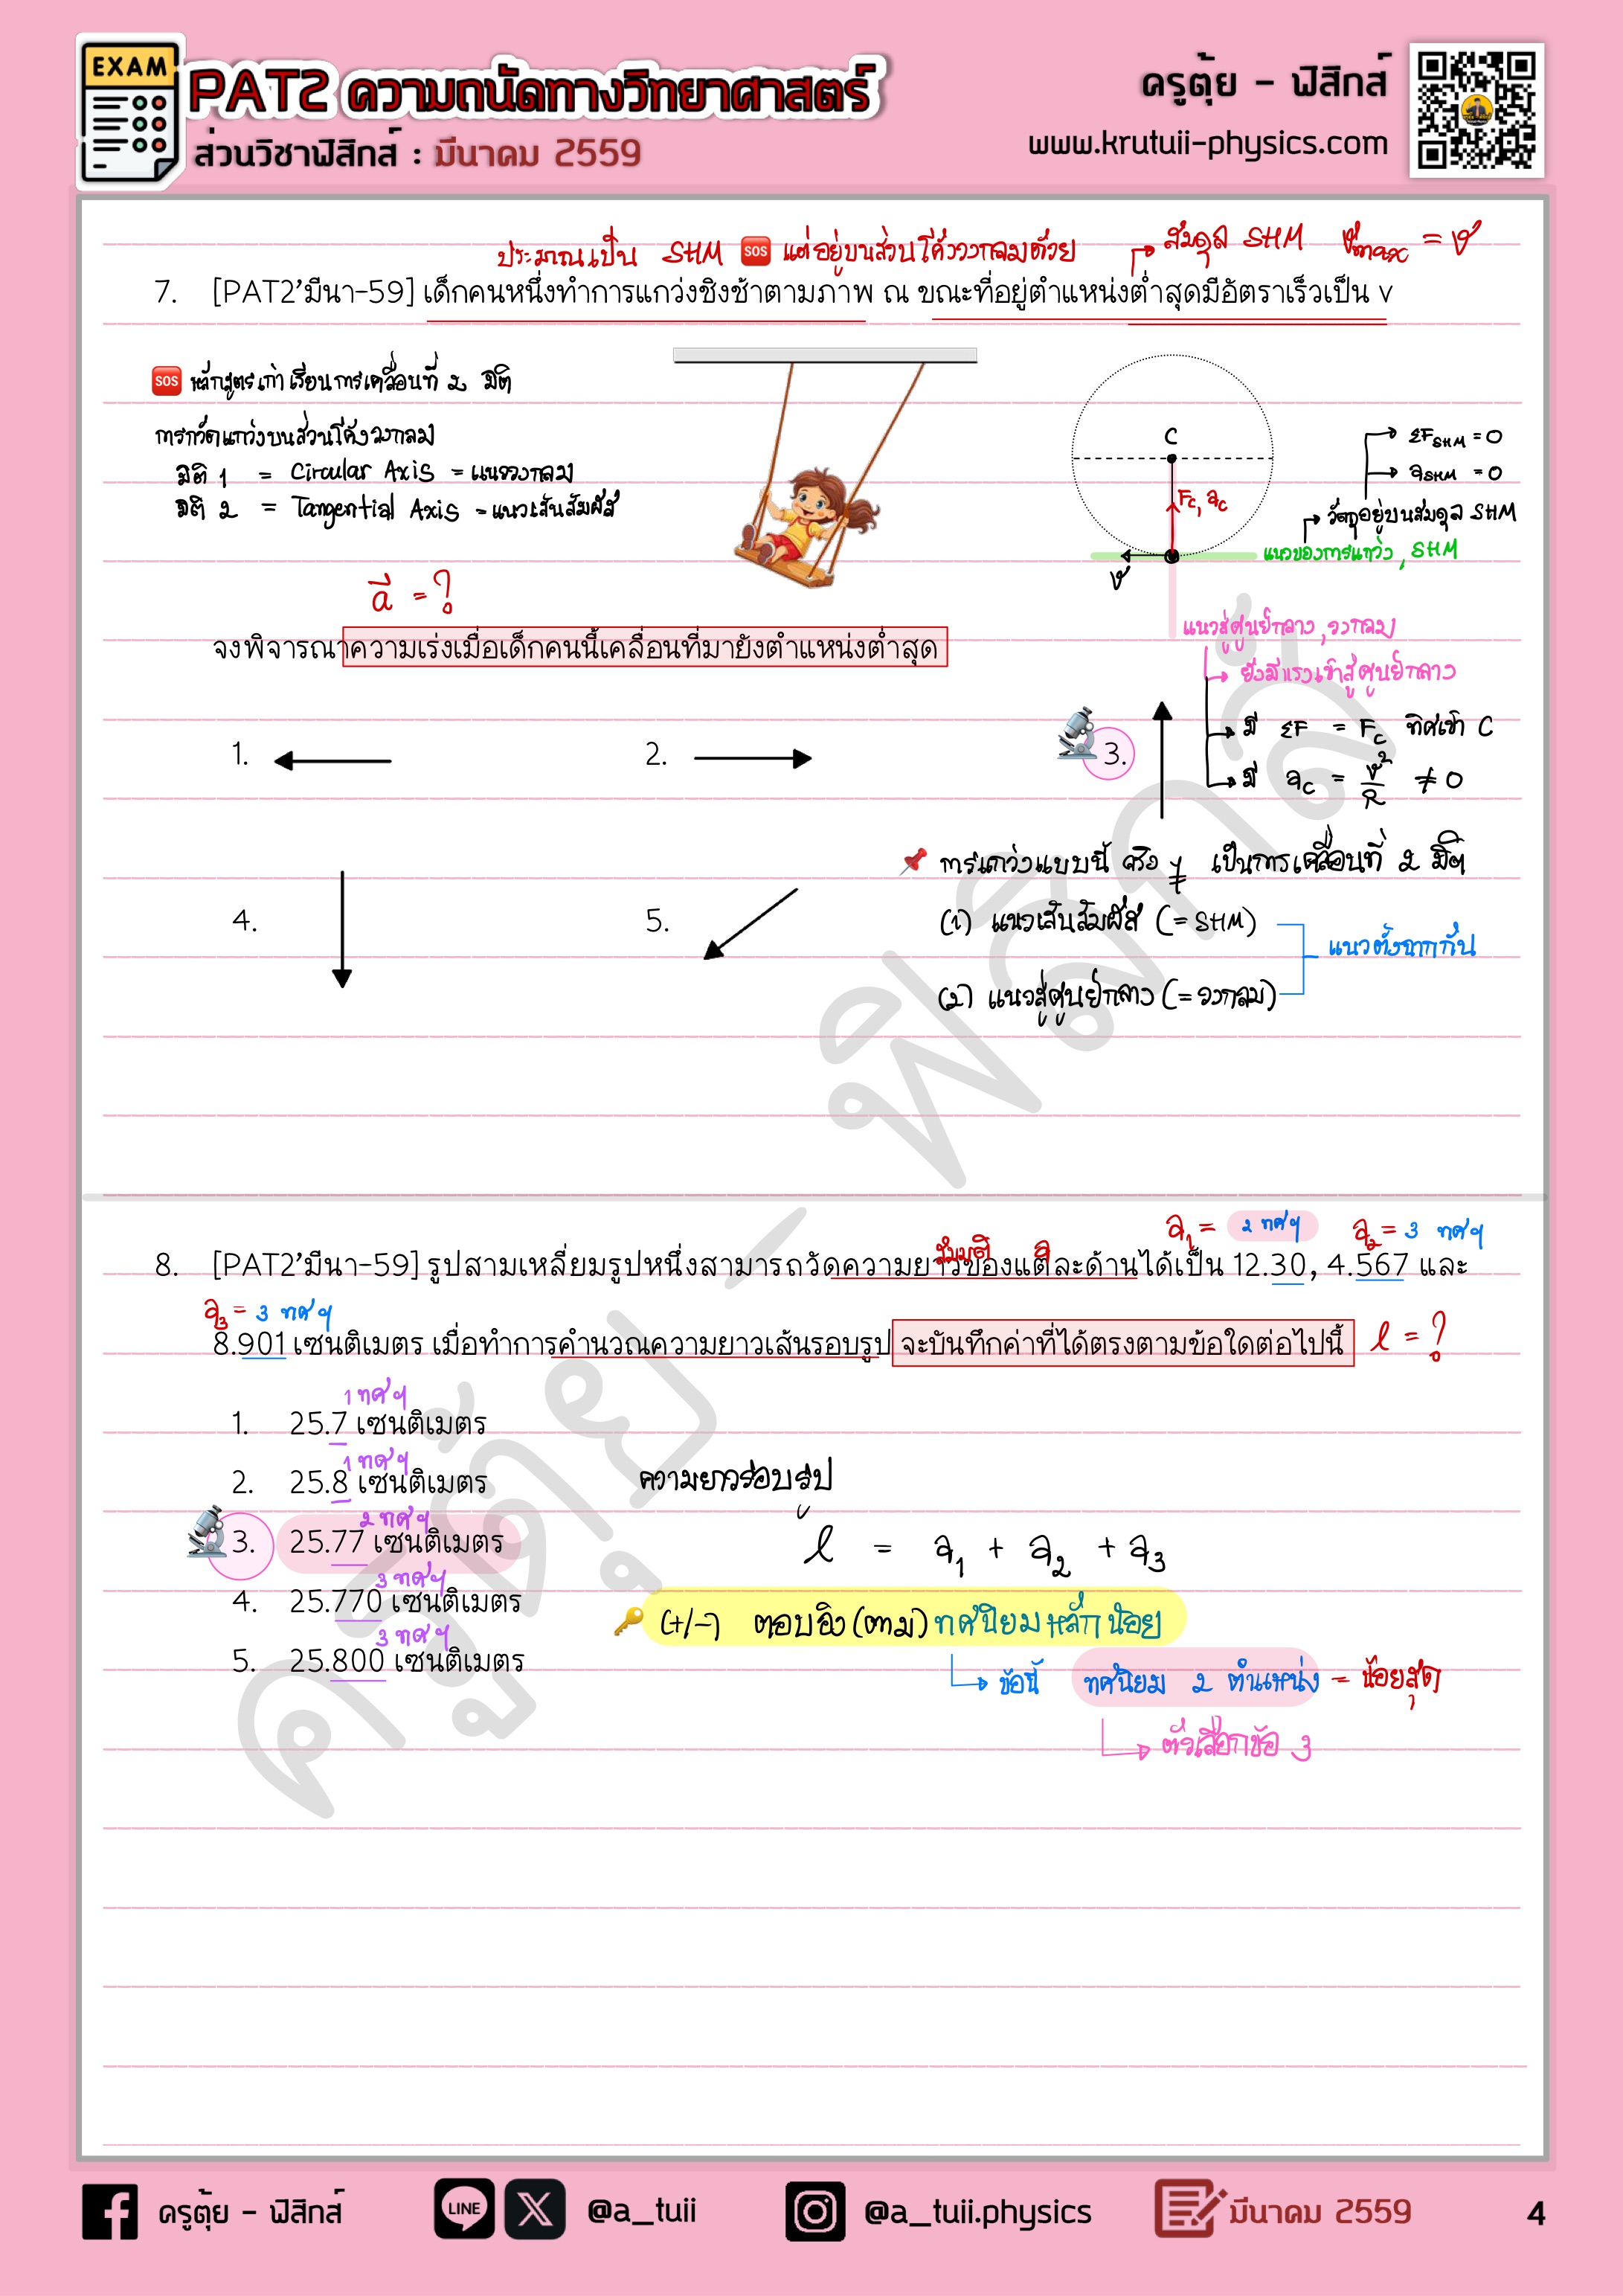 EXAM
PAT2 ความถนัดทางวิทยาศาสตร์
ส่วนวิชาฟิสิกส์ : มีนาคม 2559
ครูตุ้ย - ฟิสิกส์
www.krutuii-physics.com
ประมาณเป็น SHM SOS แต่อยู่บนส่วนโค้งวงกลมด้วย
สมดุล SHM vmax = v
7. [PAT2'มีนา-59] เด็กคนหนึ่งทำการแกว่งชิงช้าตามภาพ ณ ขณะที่อยู่ตำแหน่งต่ำสุดมีอัตราเร็วเป็น v
SOS หลักสูตรเก่าเรียนการเคลื่อนที่ 2 มิติ
การกวัดแกว่งบนส่วนโค้งวงกลม
มิติ 1 = Circular Axis = แนววงกลม
มิติ 2 = Tangential Axis = แนวเส้นสัมผัส
C
Fc, ac
v
ΣF_SHM = 0
a_SHM = 0
วัตถุอยู่บนสมดุล SHM
แนวของการแกว่ง, SHM
a⃗ = ?
จงพิจารณาความเร่งเมื่อเด็กคนนี้เคลื่อนที่มายังตำแหน่งต่ำสุด
แนวสู่ศูนย์กลาง, วงกลม
ยังมีแรงเข้าสู่ศูนย์กลาง
มี ΣF = Fc ทิศเข้า C
มี ac = v²/R ≠ 0
1.
2.
3.
4.
5.
การแกว่งแบบนี้ จริง ๆ เป็นการเคลื่อนที่ 2 มิติ
(1) แนวเส้นสัมผัส (= SHM)
(2) แนวสู่ศูนย์กลาง (= วงกลม)
แนวตั้งฉากกัน
สมมติ a
a₁ = 2 ทศฯ a₂ = 3 ทศฯ
8. [PAT2'มีนา-59] รูปสามเหลี่ยมรูปหนึ่งสามารถวัดความยาวของแต่ละด้านได้เป็น 12.30, 4.567 และ
a₃ = 3 ทศฯ
8.901 เซนติเมตร เมื่อทำการคำนวณความยาวเส้นรอบรูป จะบันทึกค่าที่ได้ตรงตามข้อใดต่อไปนี้ l = ?
1 ทศฯ
1. 25.7 เซนติเมตร
1 ทศฯ
2. 25.8 เซนติเมตร
2 ทศฯ
3. 25.77 เซนติเมตร
3 ทศฯ
4. 25.770 เซนติเมตร
3 ทศฯ
5. 25.800 เซนติเมตร
ความยาวรอบรูป
l = a₁ + a₂ + a₃
(+/-) ตอบอิง (ตาม) ทศนิยมหลักน้อย
ข้อนี้ ทศนิยม 2 ตำแหน่ง = น้อยสุด
ตัวเลือกข้อ 3
ครูตุ้ย - ฟิสิกส์
ครูตุ้ย - ฟิสิกส์
LINE
@a_tuii
@a_tuii.physics
มีนาคม 2559
4